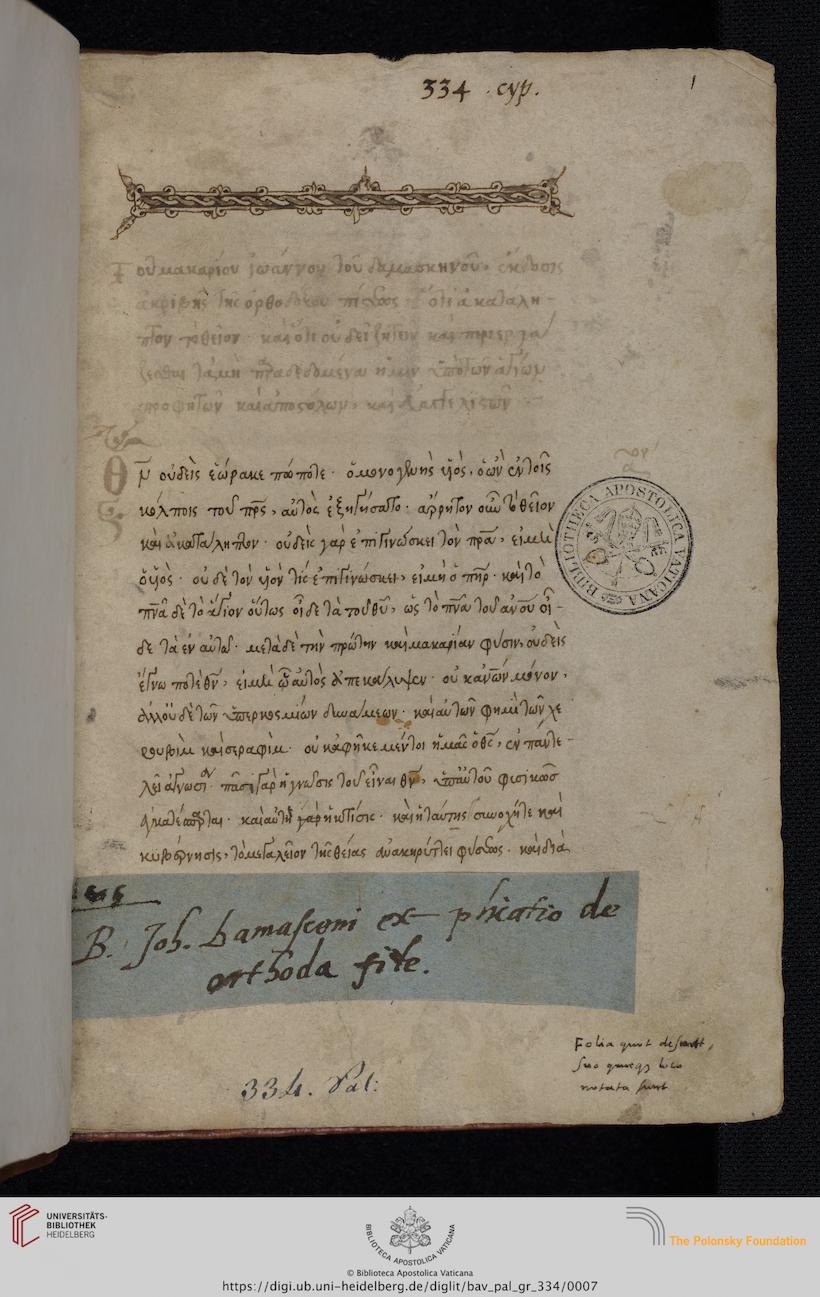 334 . cyp.
1
Τοῦ μακαρίου ἰωάννου τοῦ δαμασκηνοῦ, ἔκδοσις
ἀκριβὴς τῆς ὀρθοδόξου πίστεως· ὅτι ἀκατάλη-
πτον τὸ θεῖον· καὶ ὅτι οὐ δεῖ ζητεῖν καὶ περιεργά
ζεσθαι τὰ μὴ παραδεδομένα ἡμῖν ὑπὸ τῶν ἁγίων
προφητῶν καὶ ἀποστόλων, καὶ εὐαγγελιστῶν
Θν οὐδεὶς ἑώρακε πώποτε· ὁ μονογενὴς υἱὸς, ὁ ὢν ἐν τοῖς
κόλποις τοῦ πρς, αὐτὸς ἐξηγήσατο· ἄρρητον οὖν τὸ θεῖον
καὶ ἀκατάληπτον· οὐδεὶς γὰρ ἐπιγινώσκει τὸν πρα, εἰ μὴ
ὁ υἱός· οὐδὲ τὸν υἱὸν τίς ἐπιγινώσκει, εἰ μὴ ὁ πηρ· καὶ τὸ
πνα δὲ τὸ ἅγιον οὕτως οἶδε τὰ τοῦ θυ, ὡς τὸ πνα τοῦ ανου οἶ-
δε τὰ ἐν αὐτῶ· μετὰ δὲ τὴν πρώτην καὶ μακαρίαν φύσιν, οὐδεὶς
ἔγνω ποτὲ θν, εἰ μὴ ᾧ αὐτὸς ἀπεκάλυψεν· οὐκ ανων μόνον,
ἀλλ' οὐδὲ τῶν ὑπερκοσμίων δυνάμεων· καὶ αὐτῶν φημὶ τῶν χε
ρουβὶμ καὶ σεραφίμ· οὐκ ἀφῆκε μέντοι ἡμᾶς ὁ θς, ἐν παντε-
λεῖ ἀγνωσία· πᾶσι γὰρ ἡ γνῶσις τοῦ εἶναι θν, ὑπ' αὐτοῦ φυσικῶς
ἐγκατέσπαρται· καὶ αὐτὴ γὰρ ἡ κτίσις· καὶ ἡ ταύτης συνοχή τε καὶ
κυβέρνησις, τὸ μεγαλεῖον τῆς θείας ἀνακηρύττει φύσεως· καὶ διὰ
BIBLIOTHECA APOSTOLICA VATICANA
B. Joh. Damasceni ex-plicatio de
orthoda fide.
Folia quot desunt,
suo quaeq; loco
notata sunt
334. Pal:
UNIVERSITÄTS-
BIBLIOTHEK
HEIDELBERG
BIBLIOTECA APOSTOLICA VATICANA
The Polonsky Foundation
© Biblioteca Apostolica Vaticana
https://digi.ub.uni-heidelberg.de/diglit/bav_pal_gr_334/0007